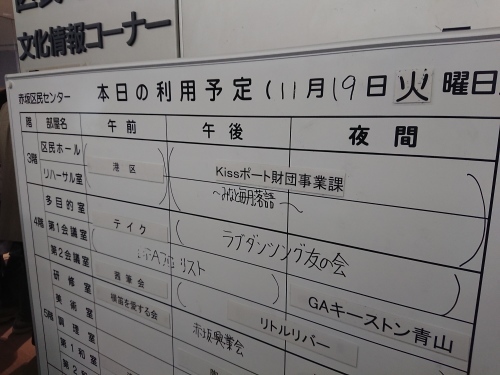 文化情報コーナー
赤坂区民センター 本日の利用予定(11月19日火曜日)
階 部屋名 午前 午後 夜間
3階 区民ホール 港区 Kissポート財団事業課
リハーサル室 ~みなと毎月落語~
4階 多目的室 テイク ラブダンソング友の会
第1会議室 リスト
第2会議室 GAキーストン青山
5階 研修室 茜筆会 リトルリバー
美術室 横笛を愛する会
調理室 赤坂興業会
第1和
第2